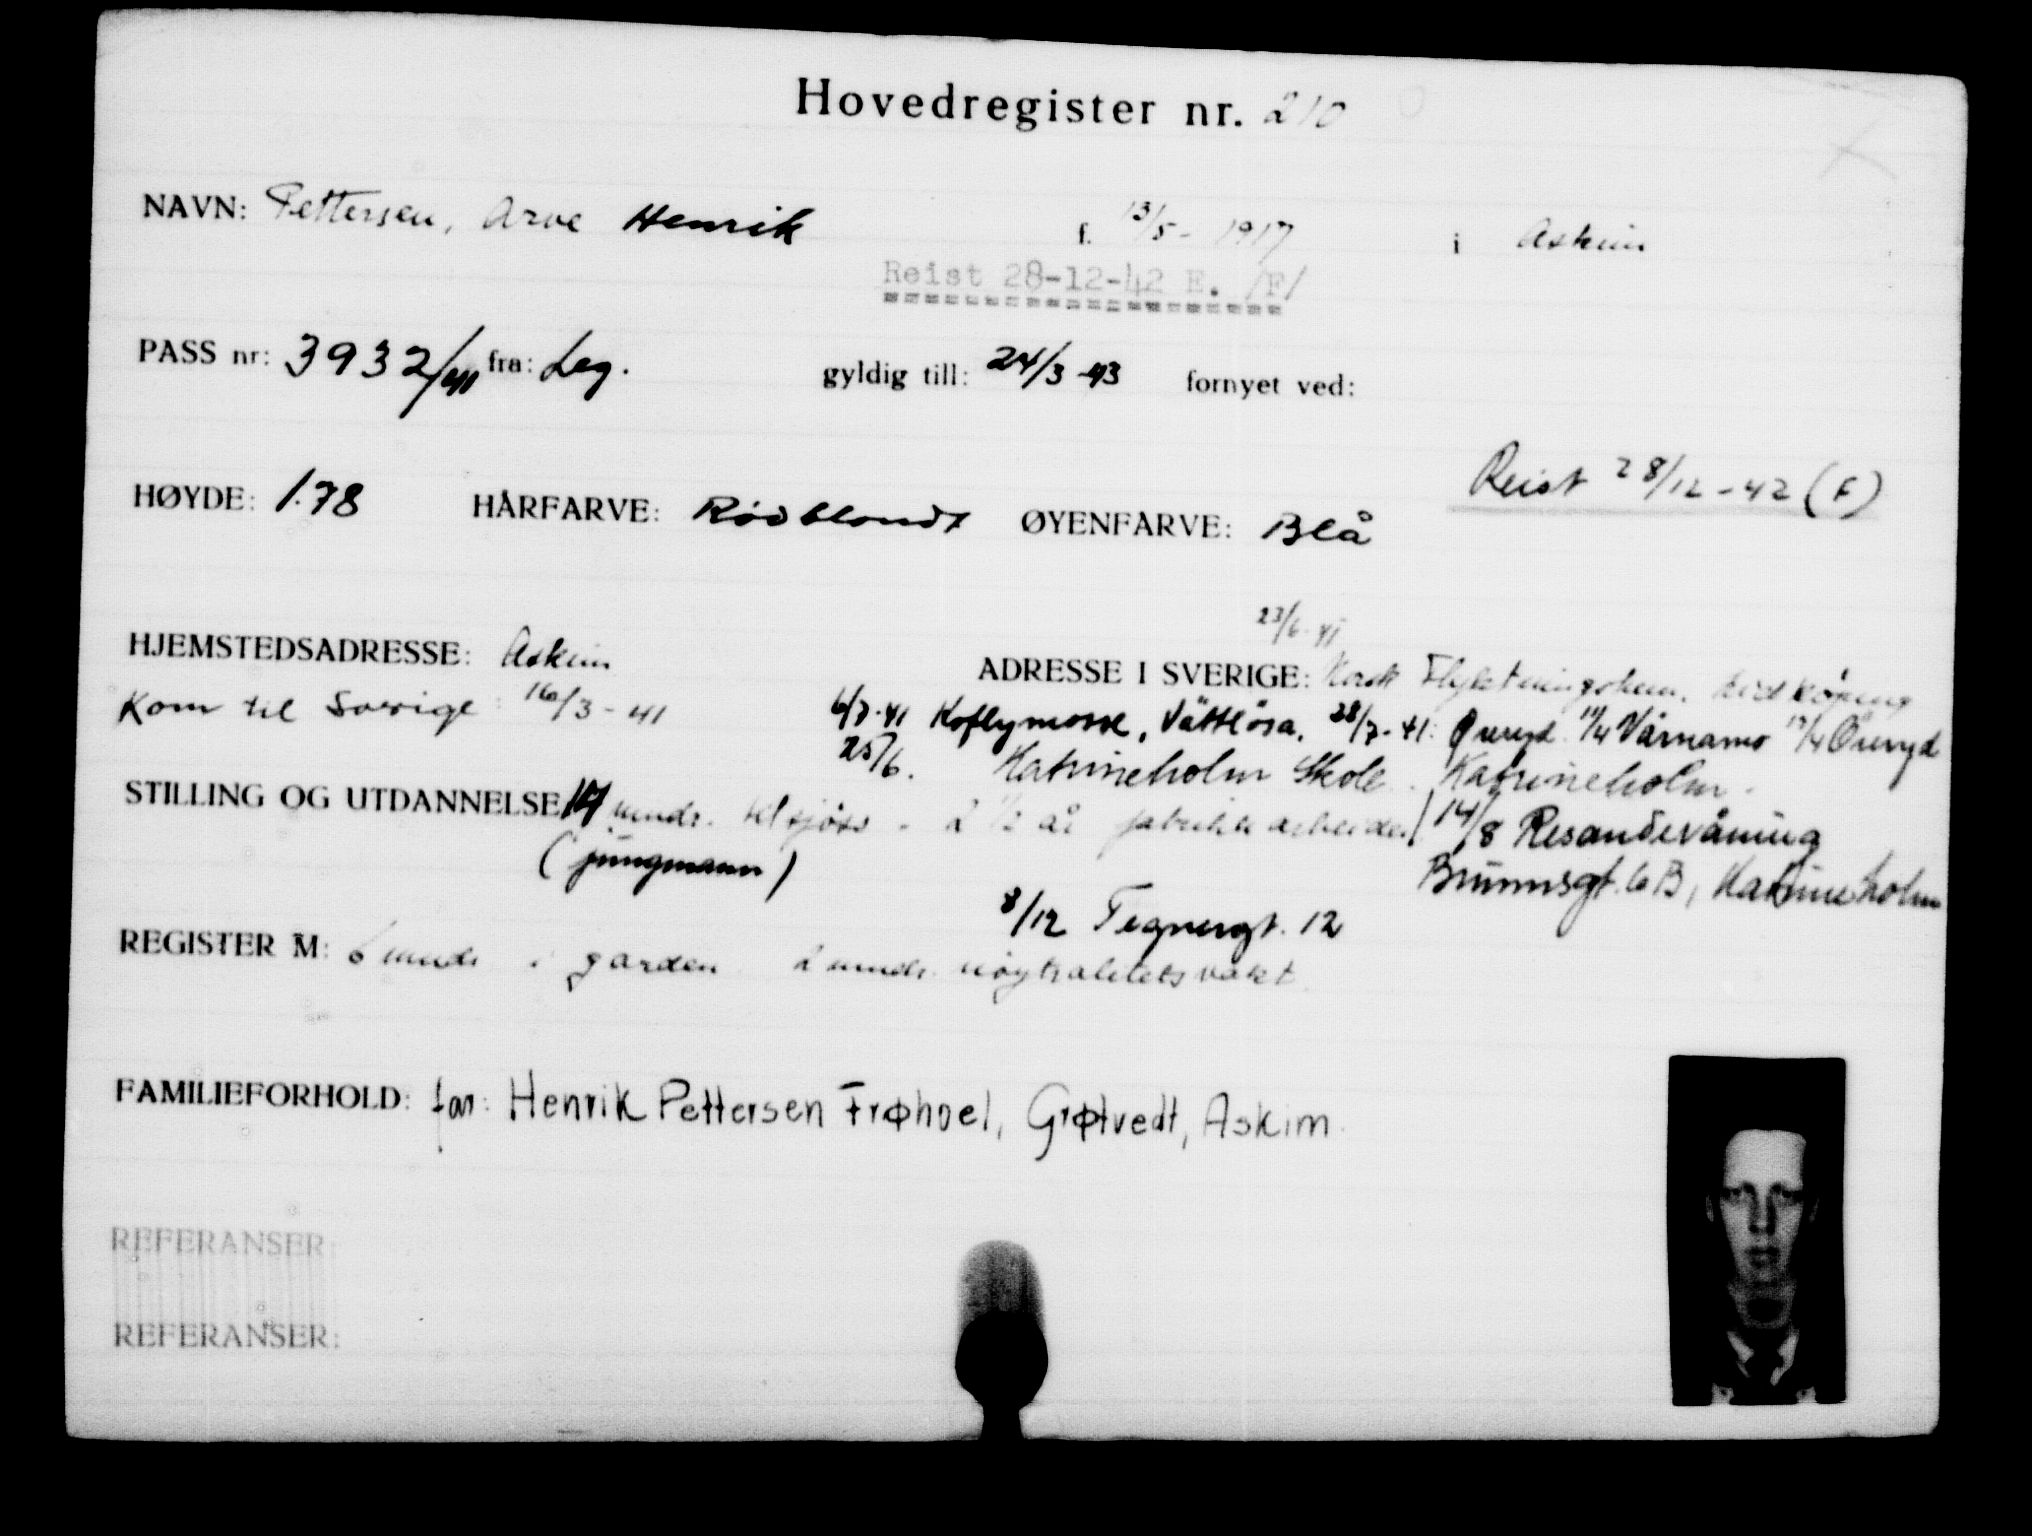 Hovedregister nr. 210
NAVN: Pettersen, Arve Henrik f. 13/5 - 1917 i Askim
Reist 28-12-42 E. /F/
PASS nr: 3932/41 fra: Leg. gyldig till: 24/3-43 fornyet ved:
Reist 28/12-42 (F)
HØYDE: 1.78 HÅRFARVE: Rødblondt ØYENFARVE: Blå
23/6-41
HJEMSTEDSADRESSE: Askim ADRESSE I SVERIGE: Norsk Flyktningshem. Lidköping
Kom til Sverige: 16/3-41 6/7-41 Koflymosse, Vättlösa, 28/7-41: Öreryd 14/4 Värnamo 17/4 Öreryd
25/6. Katrineholm Skole. Katrineholm.
STILLING OG UTDANNELSE 14 mndr. til sjøss - 2 1/2 år fabrikkarbeider/ 14/8 Resandevåning
(jungmann) Brunnsgt. 6B, Katrineholm
8/12 Tegnergt. 12
REGISTER M: 6 mndr i garden 2 mndr. nøytralitetsvakt.
FAMILIEFORHOLD: far: Henrik Pettersen Frøhoel, Grøtvedt, Askim.
REFERANSER:
REFERANSER: